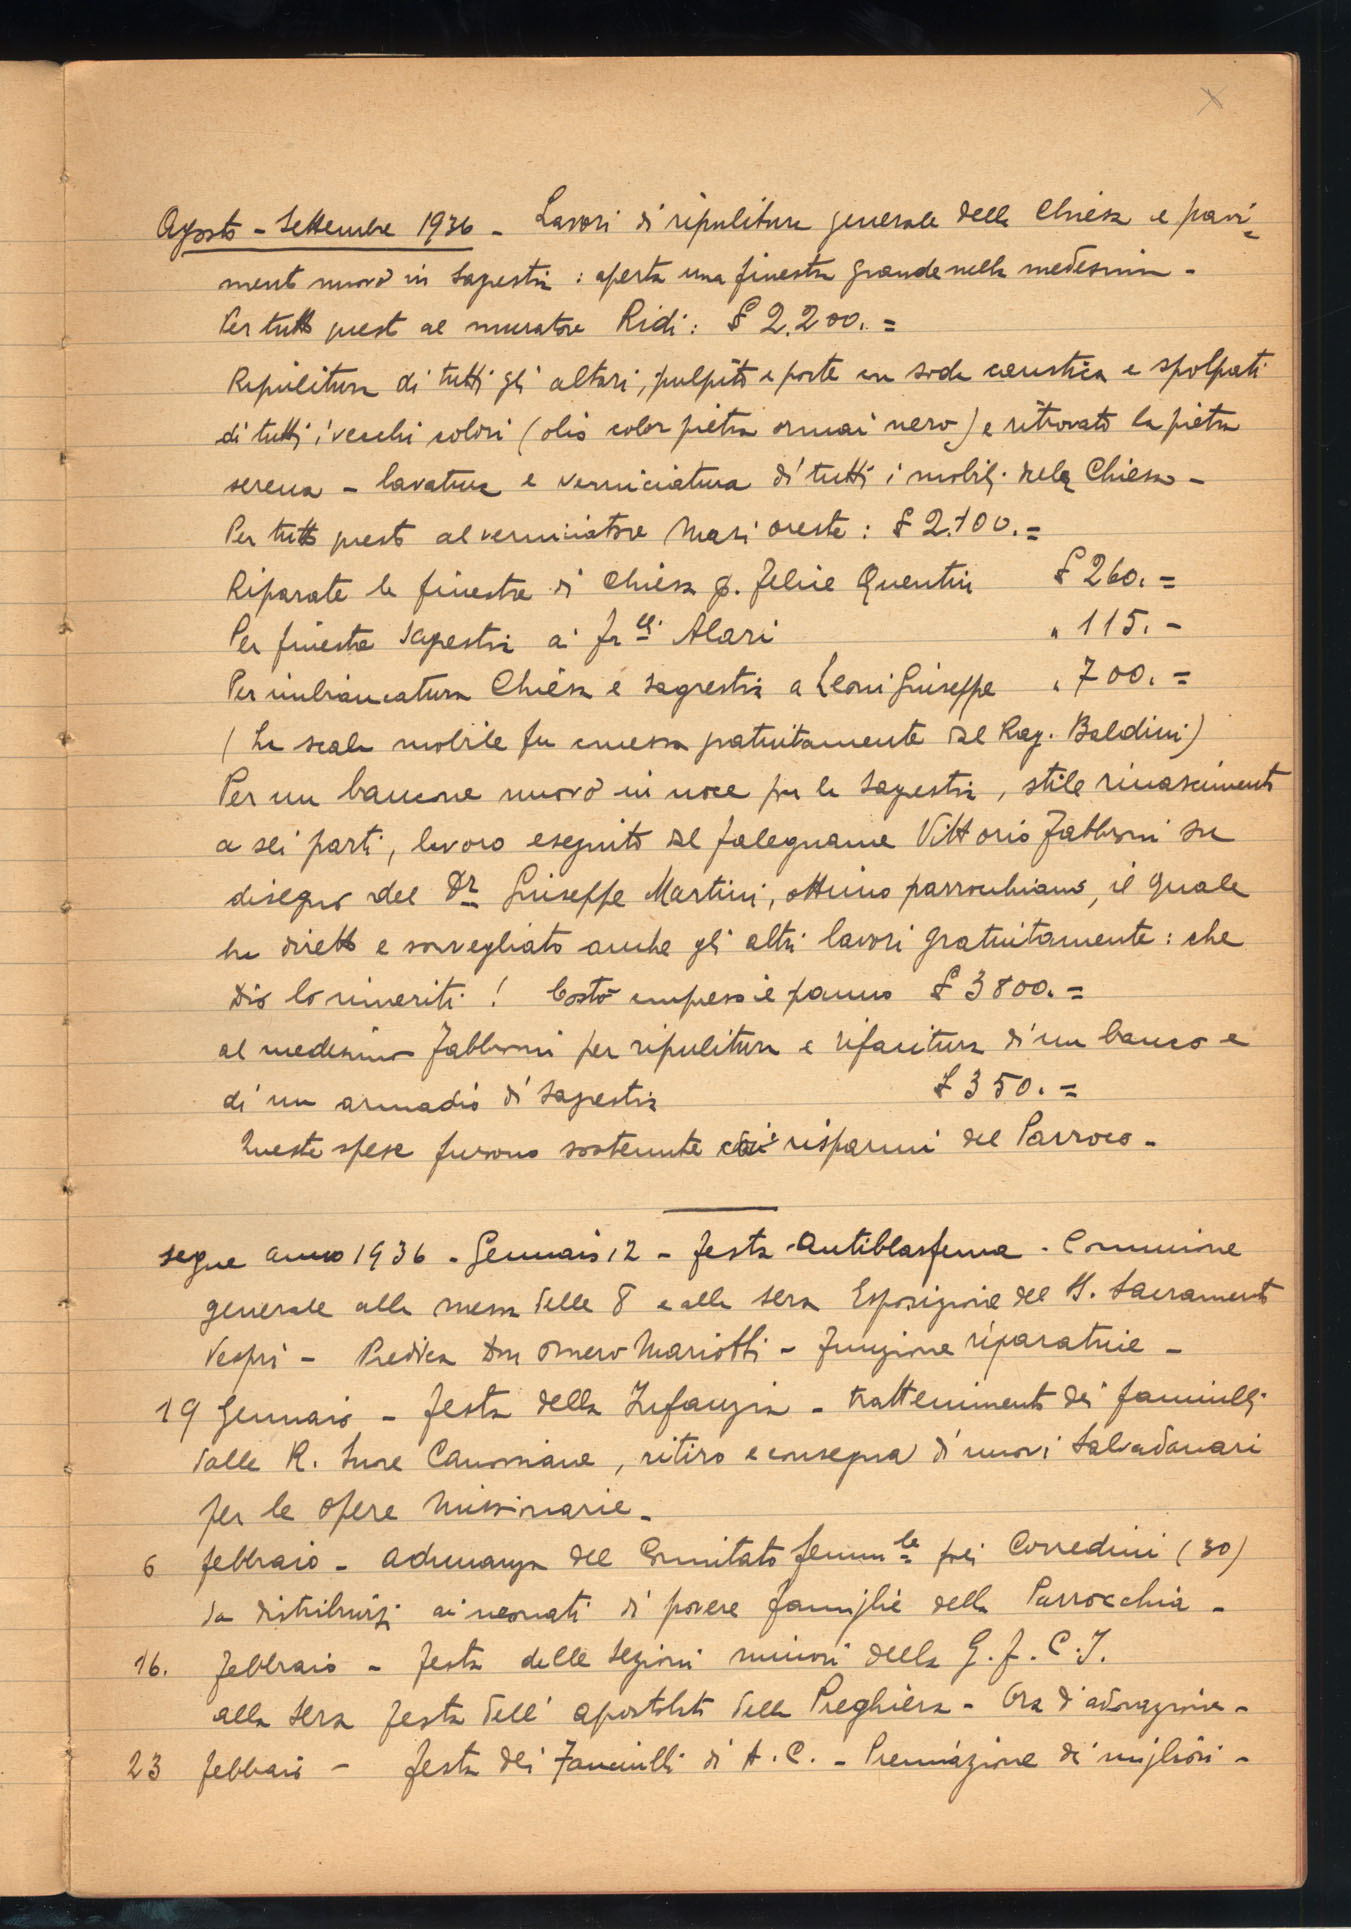 Agosto - Settembre 1936 - Lavori di ripulitura generale della Chiesa e pavi=
mento nuovo in Sagrestia : aperta una finestra grande nella medesima -
Per tutto questo al muratore Ridi : £ 2.200. =
Ripulitura di tutti gli altari, pulpito e porte con soda caustica e spolpati
di tutti i vecchi colori (olio color pietra ormai nero) e ritrovato la pietra
serena - lavatura e verniciatura di tutti i mobili della Chiesa -
Per tutto questo al verniciatore Masi Oreste : £ 2.100. =
Riparate le finestre di Chiesa Felice Quentin £ 260. =
Per finestra Sagrestia ai F.lli Alari " 115. -
Per imbiancatura Chiesa e Sagrestia a Leoni Giuseppe " 700. =
(La scala mobile fu concessa gratuitamente dal Rag. Baldini)
Per un bancone nuovo in noce per la Sagrestia, stile rinascimento
a sei parti, lavoro eseguito dal falegname Vittorio Fabbroni su
disegno del Dr Giuseppe Martini, ottimo parrocchiano, il quale
ha diretto e sorvegliato anche gli altri lavori gratuitamente : che
Dio lo rimeriti ! Costò compreso il panno £ 3800. =
al medesimo Fabbroni per ripulitura e rifacitura di un banco e
di un armadio di Sagrestia £ 350. =
Queste spese furono sostenute risparmi del Parroco -
segue anno 1936 - Gennaio 12 - Festa Antiblasfema - Comunione
generale alla messa delle 8 e alla sera Esposizione del SS. Sacramento
Vespri - Predica Don Omero Mariotti - Funzione riparatrice -
19 Gennaio - festa della Infanzia - trattenimento dei fanciulli
dalle R. Suore Canossiane, ritiro e consegna di nuovi Salvadanari
per le Opere Missionarie -
6 febbraio - adunanza del Comitato femm.le pei Corredini (30)
da distribuirsi ai neonati di povere famiglie della Parrocchia -
16. febbraio - festa delle Sezioni minori della G. F. C. I.
alla sera festa dell' apostolato della Preghiera - Ora d'adorazione -
23 febbraio - festa dei Fanciulli di A. C. - Premiazione dei migliori -